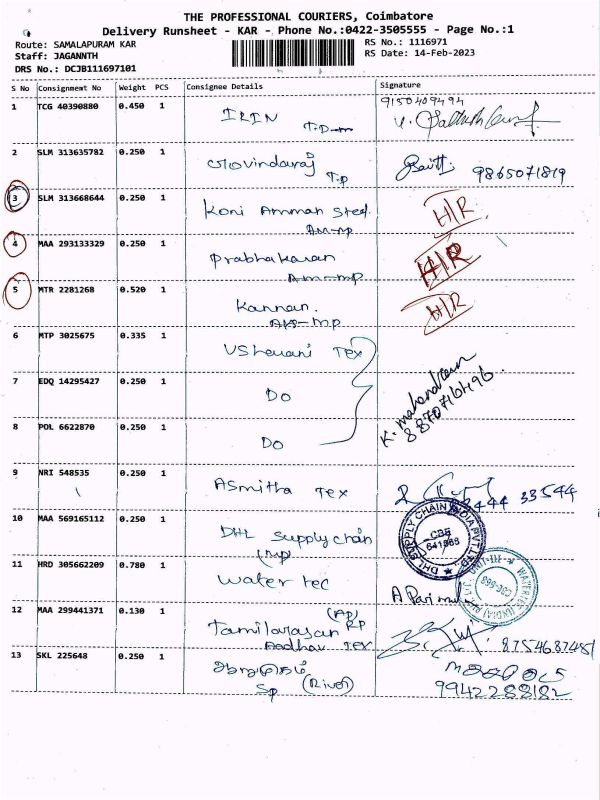 THE PROFESSIONAL COURIERS, Coimbatore
Delivery Runsheet - KAR - Phone No.:0422-3505555 - Page No.:1
Route: SAMALAPURAM KAR
RS No.: 1116971
Staff: JAGANNTH
RS Date: 14-Feb-2023
DRS No.: DCJB111697101
S No Consignment No Weight PCS Consignee Details Signature
1 TCG 40390880 0.450 1 IRIN 9150409494
2 SLM 313635782 0.250 1 Govindaraj T.p 9865071819
3 SLM 313668644 0.250 1 Koni Amman Steel H/R
Am-mp
4 MAA 293133329 0.250 1 Prabhakaran H/R
Am-mp
5 MTR 2281268 0.520 1 Kannan. H/R
6 MTP 3025675 0.335 1 Tex
7 EDQ 14295427 0.250 1 Do K. 
8 POL 6622870 0.250 1 Do
9 NRI 548535 0.250 1 Asmitha Tex 33544
10 MAA 569165112 0.250 1 DHL Supply chain
(mp)
DHL SUPPLY CHAIN INDIA PVT LTD
CBE
11 HRD 305662209 0.780 1 water tec A
12 MAA 299441371 0.130 1 Tamilarasan (AP) RP 8754687451
Aadhav Tex
13 SKL 225648 0.250 1
Sp (River) 9942288182